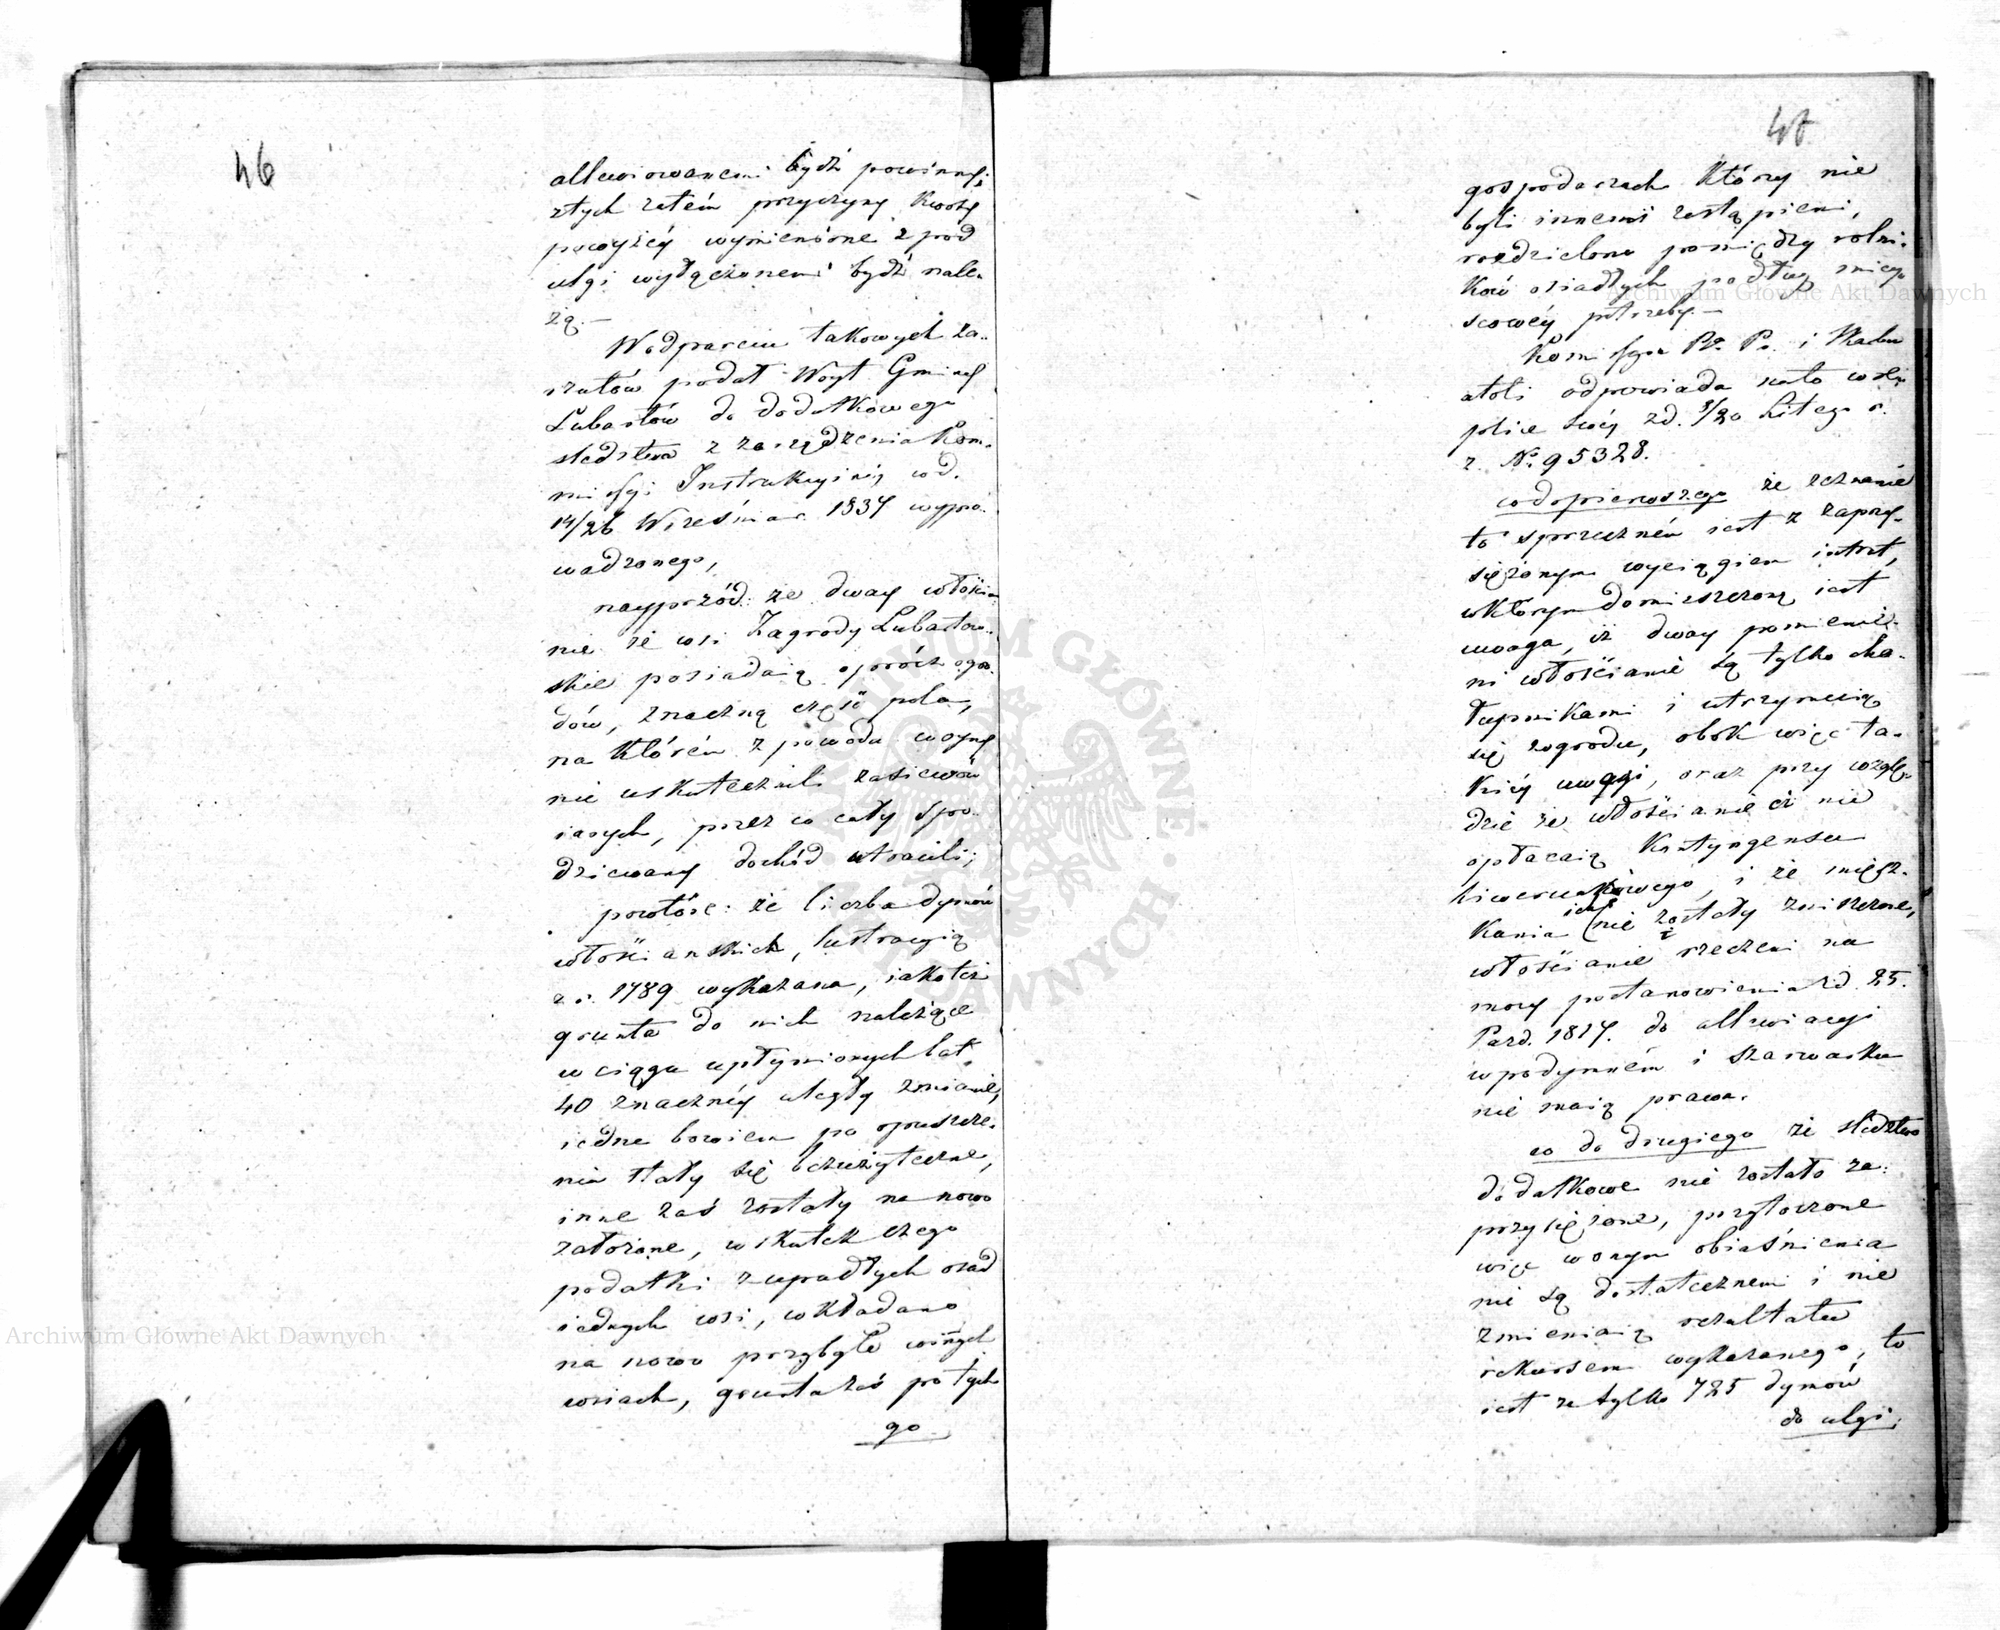 46
allewiowanemi bydź powinny;
ztych zatém przyczyny kwoty
powyżéy wymienióne z pod
ulgi wyłączonemi bydź nale-
żą. —
W odparciu takowych za-
rzutów podał Woyt Gminy
Lubartów do dodatkowego
sledztwa z zarządzenia Kom-
missyi Instrukcyinéy w d.
14/26 Wrześnias. 1834 wypro-
wadzonego,
nayprzód: że dway włościa-
nie ze wsi Zagrody Lubartow-
skie posiadaią oprócz ogro-
dów, znaczną część pola,
na którém z powodu woyny
nie uskutecznili zasiewów
iarych, przez co cały spo-
dziewany dochód utracili;
powtóre: że liczba dymów
włościanskich, lustracyią
z r. 1789 wykazana, iakotéż
grunta do nich należące
w ciągu upłynionych lat
40 znacznéy uległy zmianie,
iedne bowiem po opuszcze-
niu stały się bezużyteczne,
inne zaś zostały na nowo
założone, w skutek czego
podatki z upadłych osad
iednych wsi, wkładano
na nowo przybyłe w innych
wsiach, grunta zaś po tych
go
47
gospodarzach którzy nie
byli innemi zastąpieni,
rozdzielono pomiędzy rolni-
ków osiadłych podług miey-
scowéy potrzeby. —
Kommissya Rz. Pr. i Skarbu
atoli odpowiada na to w re-
plice swéy z d. 8/20 Lutego r.
z. No. 95328.
co do pierwszego że zeznanie
to sprzeczném iest z zaprzy-
siężonym wyciągiem intrat,
w którym domieszczoną iest
uwaga, iż dway pomienie-
ni włościanie są tylko cha-
łupnikami i utrzymuią
się zogrodu, obok więc ta-
kiéy uwagi, oraz przy wzglę-
dzie że włościanie ci nie
opłacaią Kontyngensu
liwerunkowego, i że miesz-
kania ich nie zostały zniszczone,
włościanie rzeczeni na
mocy postanowienia z d. 25.
Pazd. 1814. do allewiacyi
w podymném i szarwarku
nie maią prawa.
co do drugiego że sledztwo
dodatkowe nie zostało za-
przysiężone, przytoczone
więc w onym obiaśnienia
nie są dostatecznemi i nie
zmieniaią rezultatu
rekursem wykazanego, to
iest ze tylko 725 dymów
do ulgi,
Archiwum Główne Akt Dawnych
Archiwum Główne Akt Dawnych
ARCHIWUM GŁÓWNE AKT DAWNYCH